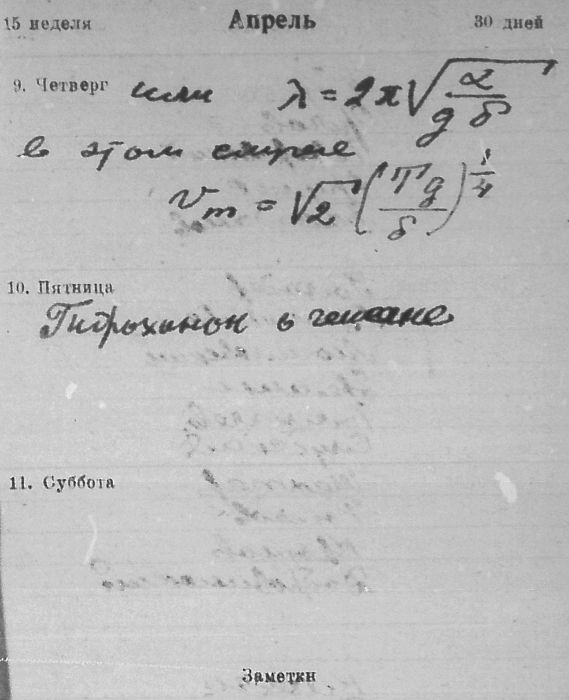 15 неделя Апрель 30 дней
9. Четверг или λ = 2π√(α/gδ)
в этом случае
v_m = √2 (Tg/δ)^1/4
10. Пятница
Гидрохинон в
11. Суббота
Заметки